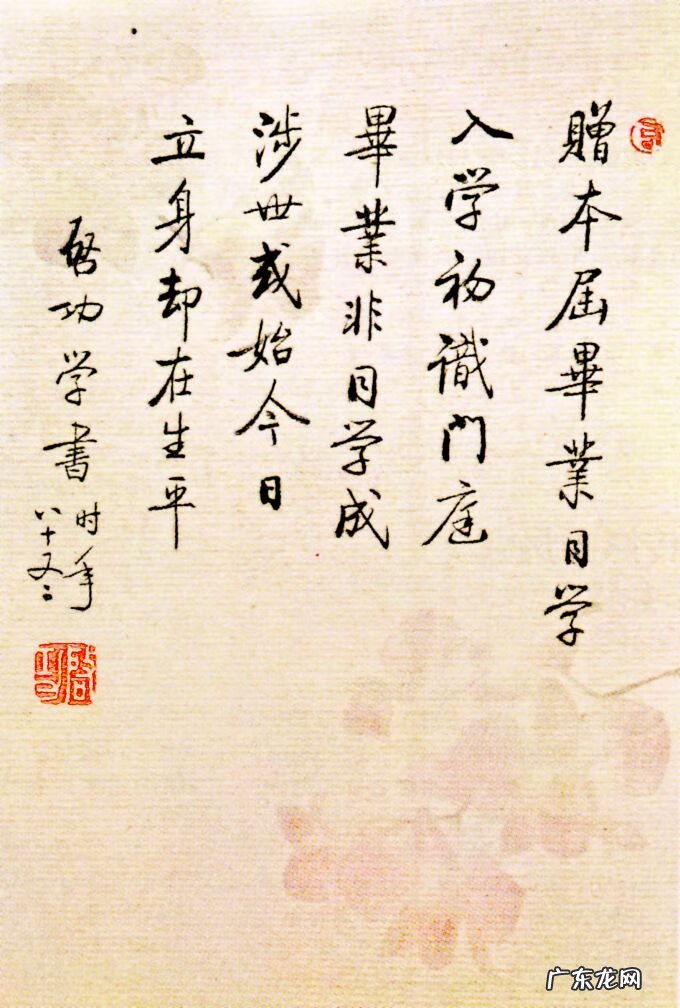 贈本屆畢業同学
入学初識門庭
畢業非同学成
涉世或始今日
立身却在生平
启功学書
时年
八十又二
启功
广东龙网